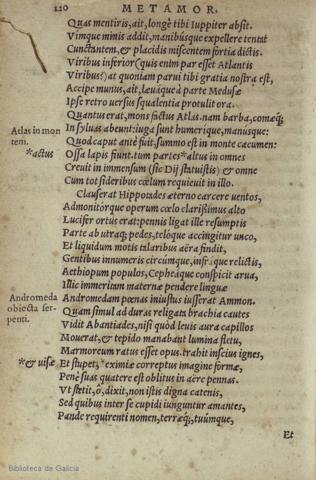 120 METAMOR.
Quas mentiris, ait, longè tibi Iuppiter absit.
Vimque minis addit, manibúsque expellere tentat
Cunctantem, & placidis miscentem fortia dictis.
Viribus inferior (quis enim par esset Atlantis
Viribus?) at quoniam parui tibi gratia nostra est,
Accipe munus, ait, læuáque à parte Medusæ
Ipse retro uersus squalentia protulit ora.
Quantus erat, mons factus Atlas. nam barba, comæq́;
Atlas in mon
tem.
In syluas abeunt: iuga sunt humerique, manusque:
Quod caput antè fuit, summo est in monte cacumen:
*actus
Ossa lapis fiunt. tum partes* altus in omnes
Creuit in immensum (sic Dij statuistis) & omne
Cum tot sideribus cœlum requieuit in illo.
Clauserat Hippotades æterno carcere ventos,
Admonitórque operum cœlo clarissimus alto
Lucifer ortus erat: pennis ligat ille resumptis
Parte ab utraq; pedes, telóque accingitur unco,
Et liquidum motis talaribus aëra findit,
Gentibus innumeris circúmque, infráque relictis,
Aethiopum populos, Cepheáque conspicit arua,
Illic immeritam maternæ pendere linguæ
Andromeda
obiecta ser-
penti.
Andromedam pœnas iniustus iusserat Ammon.
Quam simul ad duras religatam brachia cautes
Vidit Abantiades, nisi quòd leuis aura capillos
Mouerat, & tepido manabant lumina fletu,
Marmoreum ratus esset opus. trahit inscius ignes,
*& uisæ
Et stupet, *eximiæ correptus imagine formæ,
Penè suas quatere est oblitus in aëre pennas.
Vt stetit, ô, dixit, non istis digna catenis,
Sed quibus inter se cupidi iunguntur amantes,
Pande requirenti nomen, terræq́;, tuúmque,
Et
Biblioteca de Galicia